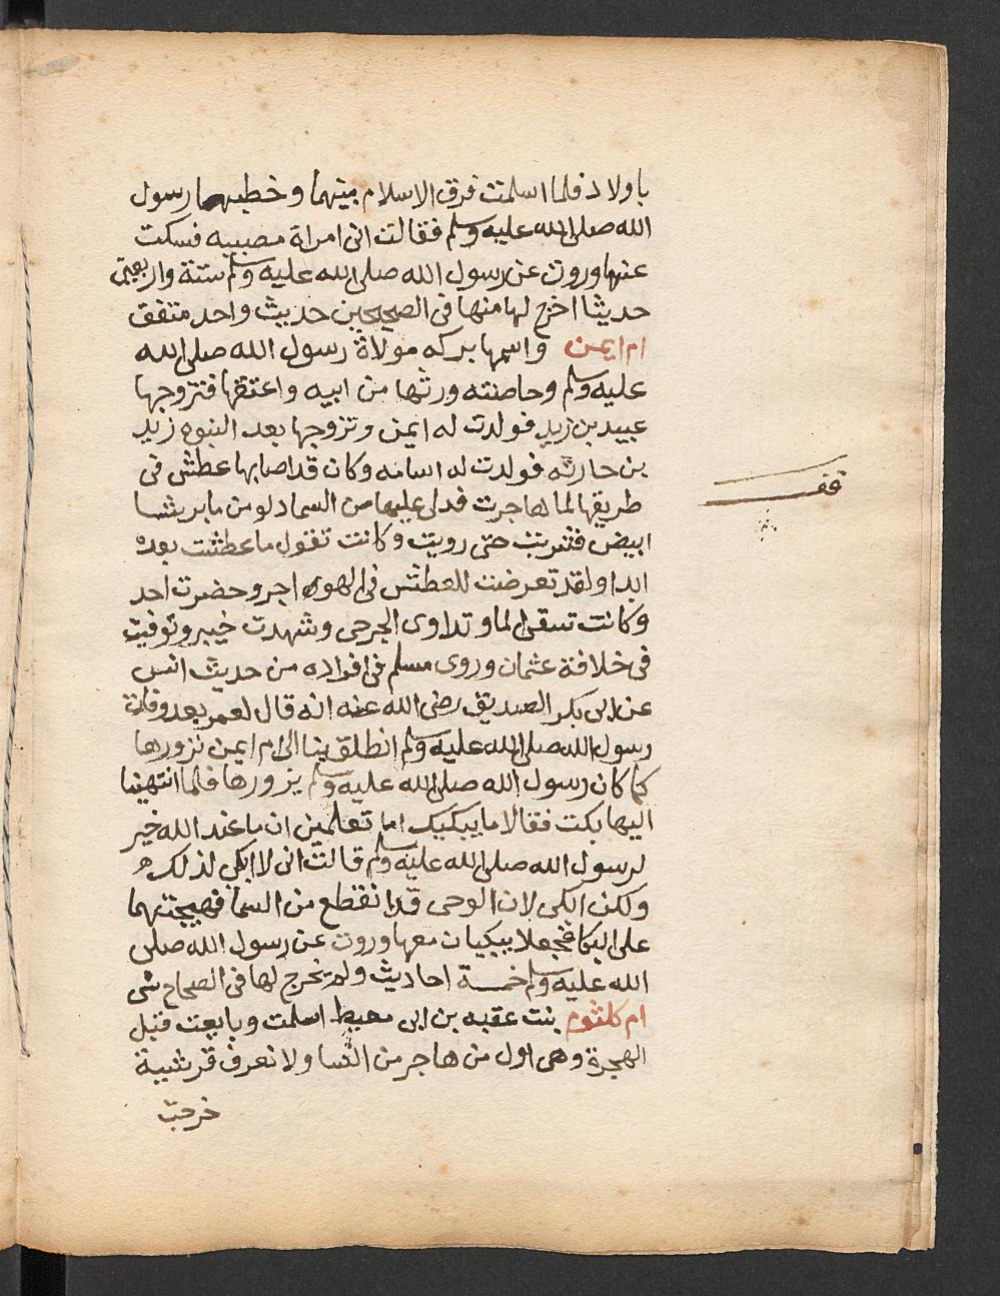 باولاد فلما اسلمت فرق الاسلام بينهما وخطبهما رسول
الله صلى الله عليه وسلم فقالت انى امراة مصبيه فسكت
عنها وروت عن رسول الله صلى الله عليه وسلم ستة واربعين
حديثا اخرج لها منها فى الصحيحين حديث واحد متفق
ام ايمن واسمها بركه مولاة رسول الله صلى الله
عليه وسلم وحاضنته ورثها من ابيه واعتقها فتزوجها
عبيد بن زيد فولدت له ايمن وتزوجها بعد النبوه زيد
بن حارثه فولدت له اسامه وكان قد اصابها عطش فى
طريقها لما هاجرت فدلى عليها من السما دلو من ما برشا
ابيض فشربت حتى رويت وكانت تقول ما عطشت بعده
ابدا ولقد تعرضت للعطش فى الهواجر وحضرت احد
وكانت تسقى الما وتداوى الجرحى وشهدت خيبر وتوفيت
فى خلافة عثمان وروى مسلم فى افراده من حديث انس
عن ابى بكر الصديق رضى الله عنه انه قال لعمر بعد وفاة
رسول الله صلى الله عليه وسلم انطلق بنا الى ام ايمن نزورها
كما كان رسول الله صلى الله عليه وسلم يزورها فلما انتهينا
اليها بكت فقالا ما يبكيك اما تعلمين ان ما عند الله خير
لرسول الله صلى الله عليه وسلم قالت انى لا ابكى لذلك
ولكن ابكى لان الوحى قد انقطع من السما فهيجتهما
على البكا فجعلا يبكيان معها وروت عن رسول الله صلى
الله عليه وسلم خمسة احاديث ولم يخرج لها فى الصحاح شى
ام كلثوم بنت عقبه بن ابى معيط اسلمت وبايعت قبل
الهجرة وهى اول من هاجر من النسا ولا نعرف قرشية
خرجت
قف